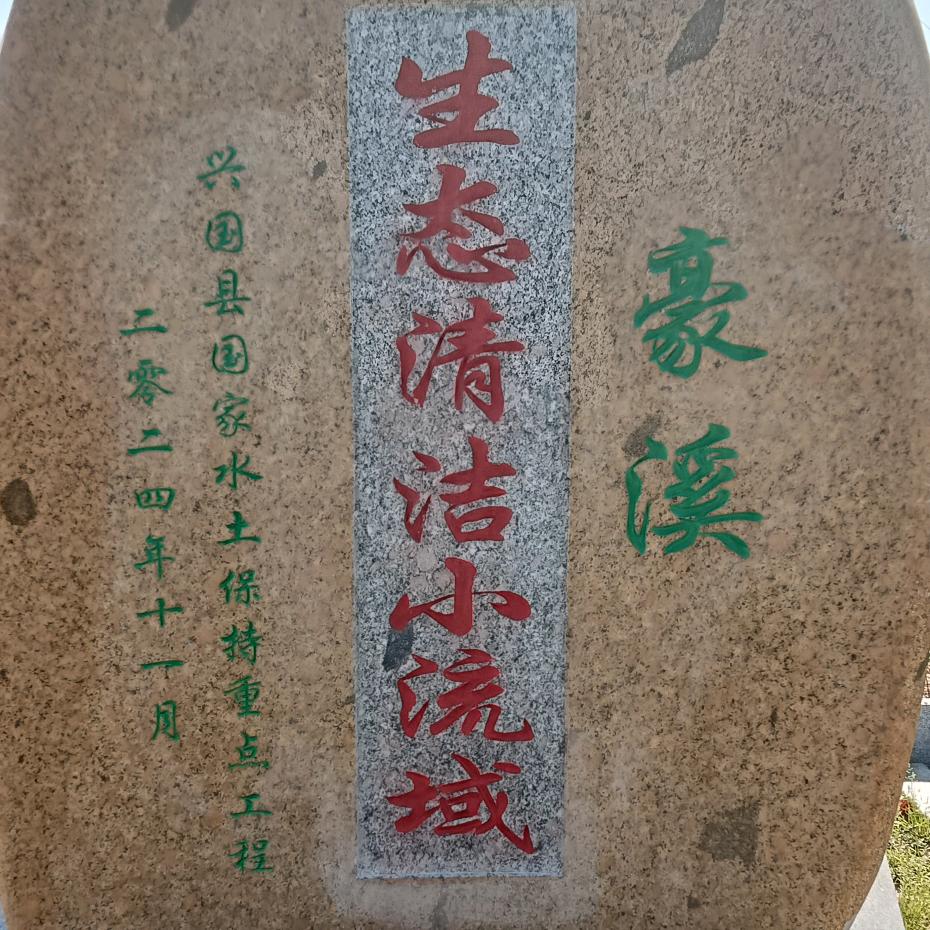 豪溪
生态清洁小流域
兴国县国家水土保持重点工程
二零二四年十一月